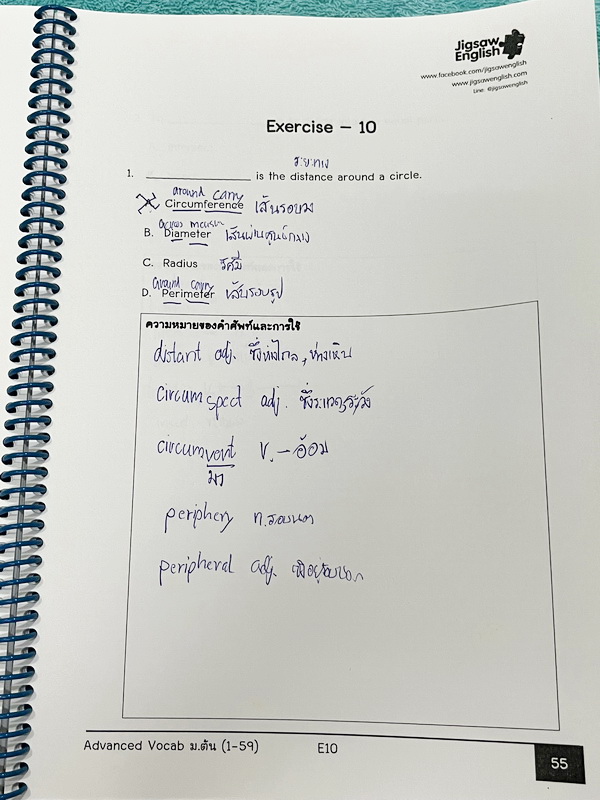 Jigsaw
English
www.facebook.com/jigsawenglish
www.jigsawenglish.com
Line: @jigsawenglish
Exercise - 10
ระยะทาง
1. ________________ is the distance around a circle.
around carry
Circumference เส้นรอบวง
across measure
B. Diameter เส้นผ่านศูนย์กลาง
C. Radius รัศมี
around carry
D. Perimeter เส้นรอบรูป
ความหมายของคำศัพท์และการใช้
distant adj. ซึ่งห่างไกล, ห่างเหิน
circumspect adj. ซึ่งระแวดระวัง
circumvent v. - อ้อม
มา
periphery n. รอบนอก
peripheral adj. ที่อยู่รอบนอก
Advanced Vocab ม.ต้น (1-59) E10 55